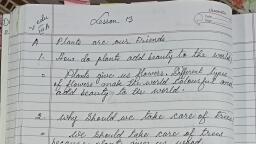 Lesson 13
A Plants are our Friends
1. How do plants add beauty to the world
= Plants give us flowers. Different types
of flowers make the world colourful and
add beauty to the world.
2. Why Should we take care of trees
= We should take care of trees
because plants gives us